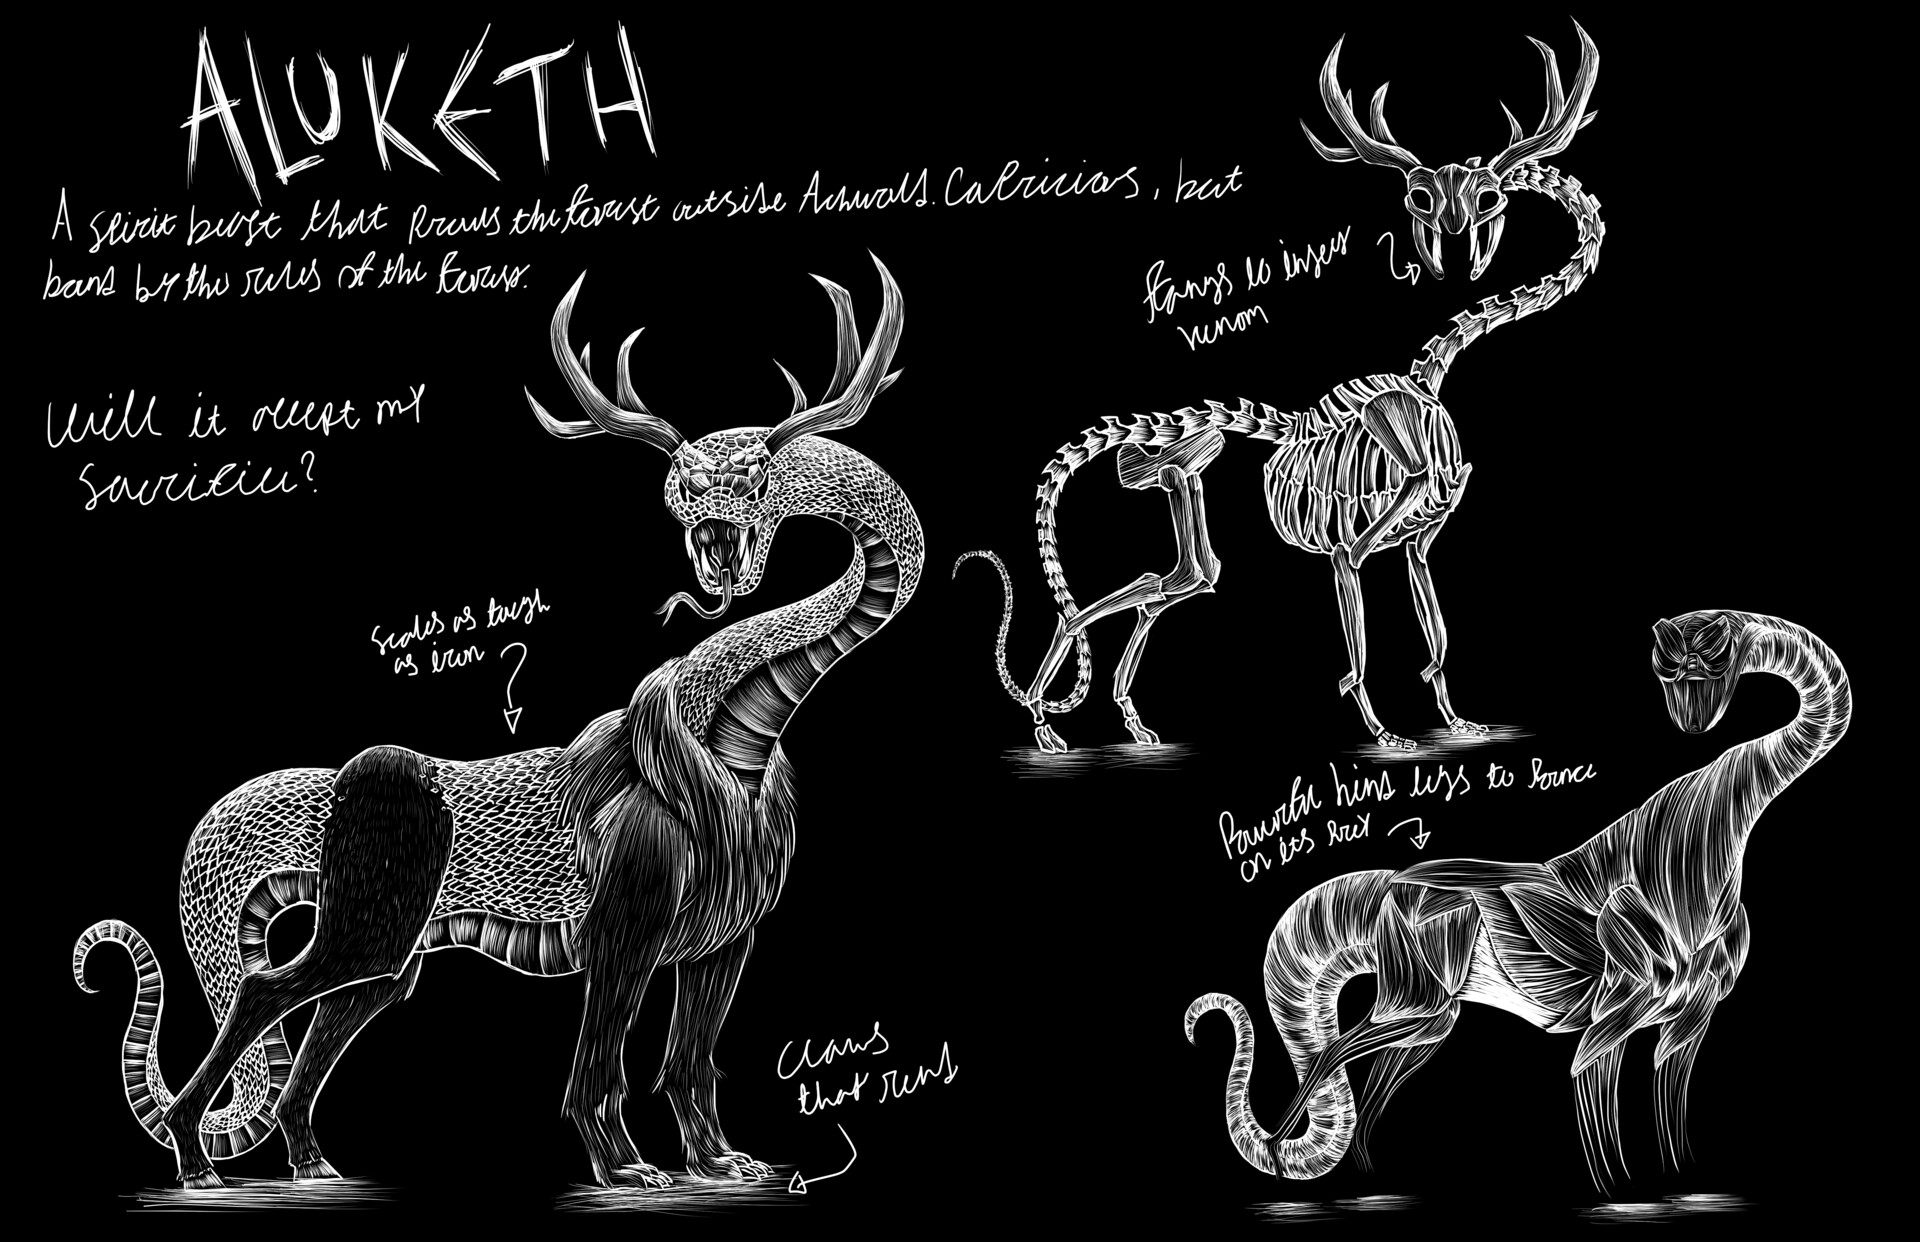 ALUKETH
A spirit beast that Prowls the forest outside. Capricious, but
bound by the rules of the forest.
Will it accept my
Sacrifice?
fangs to inject
venom
scales as tough
as iron
Powerful hind legs to Pounce
on its prey
Claws
that rend